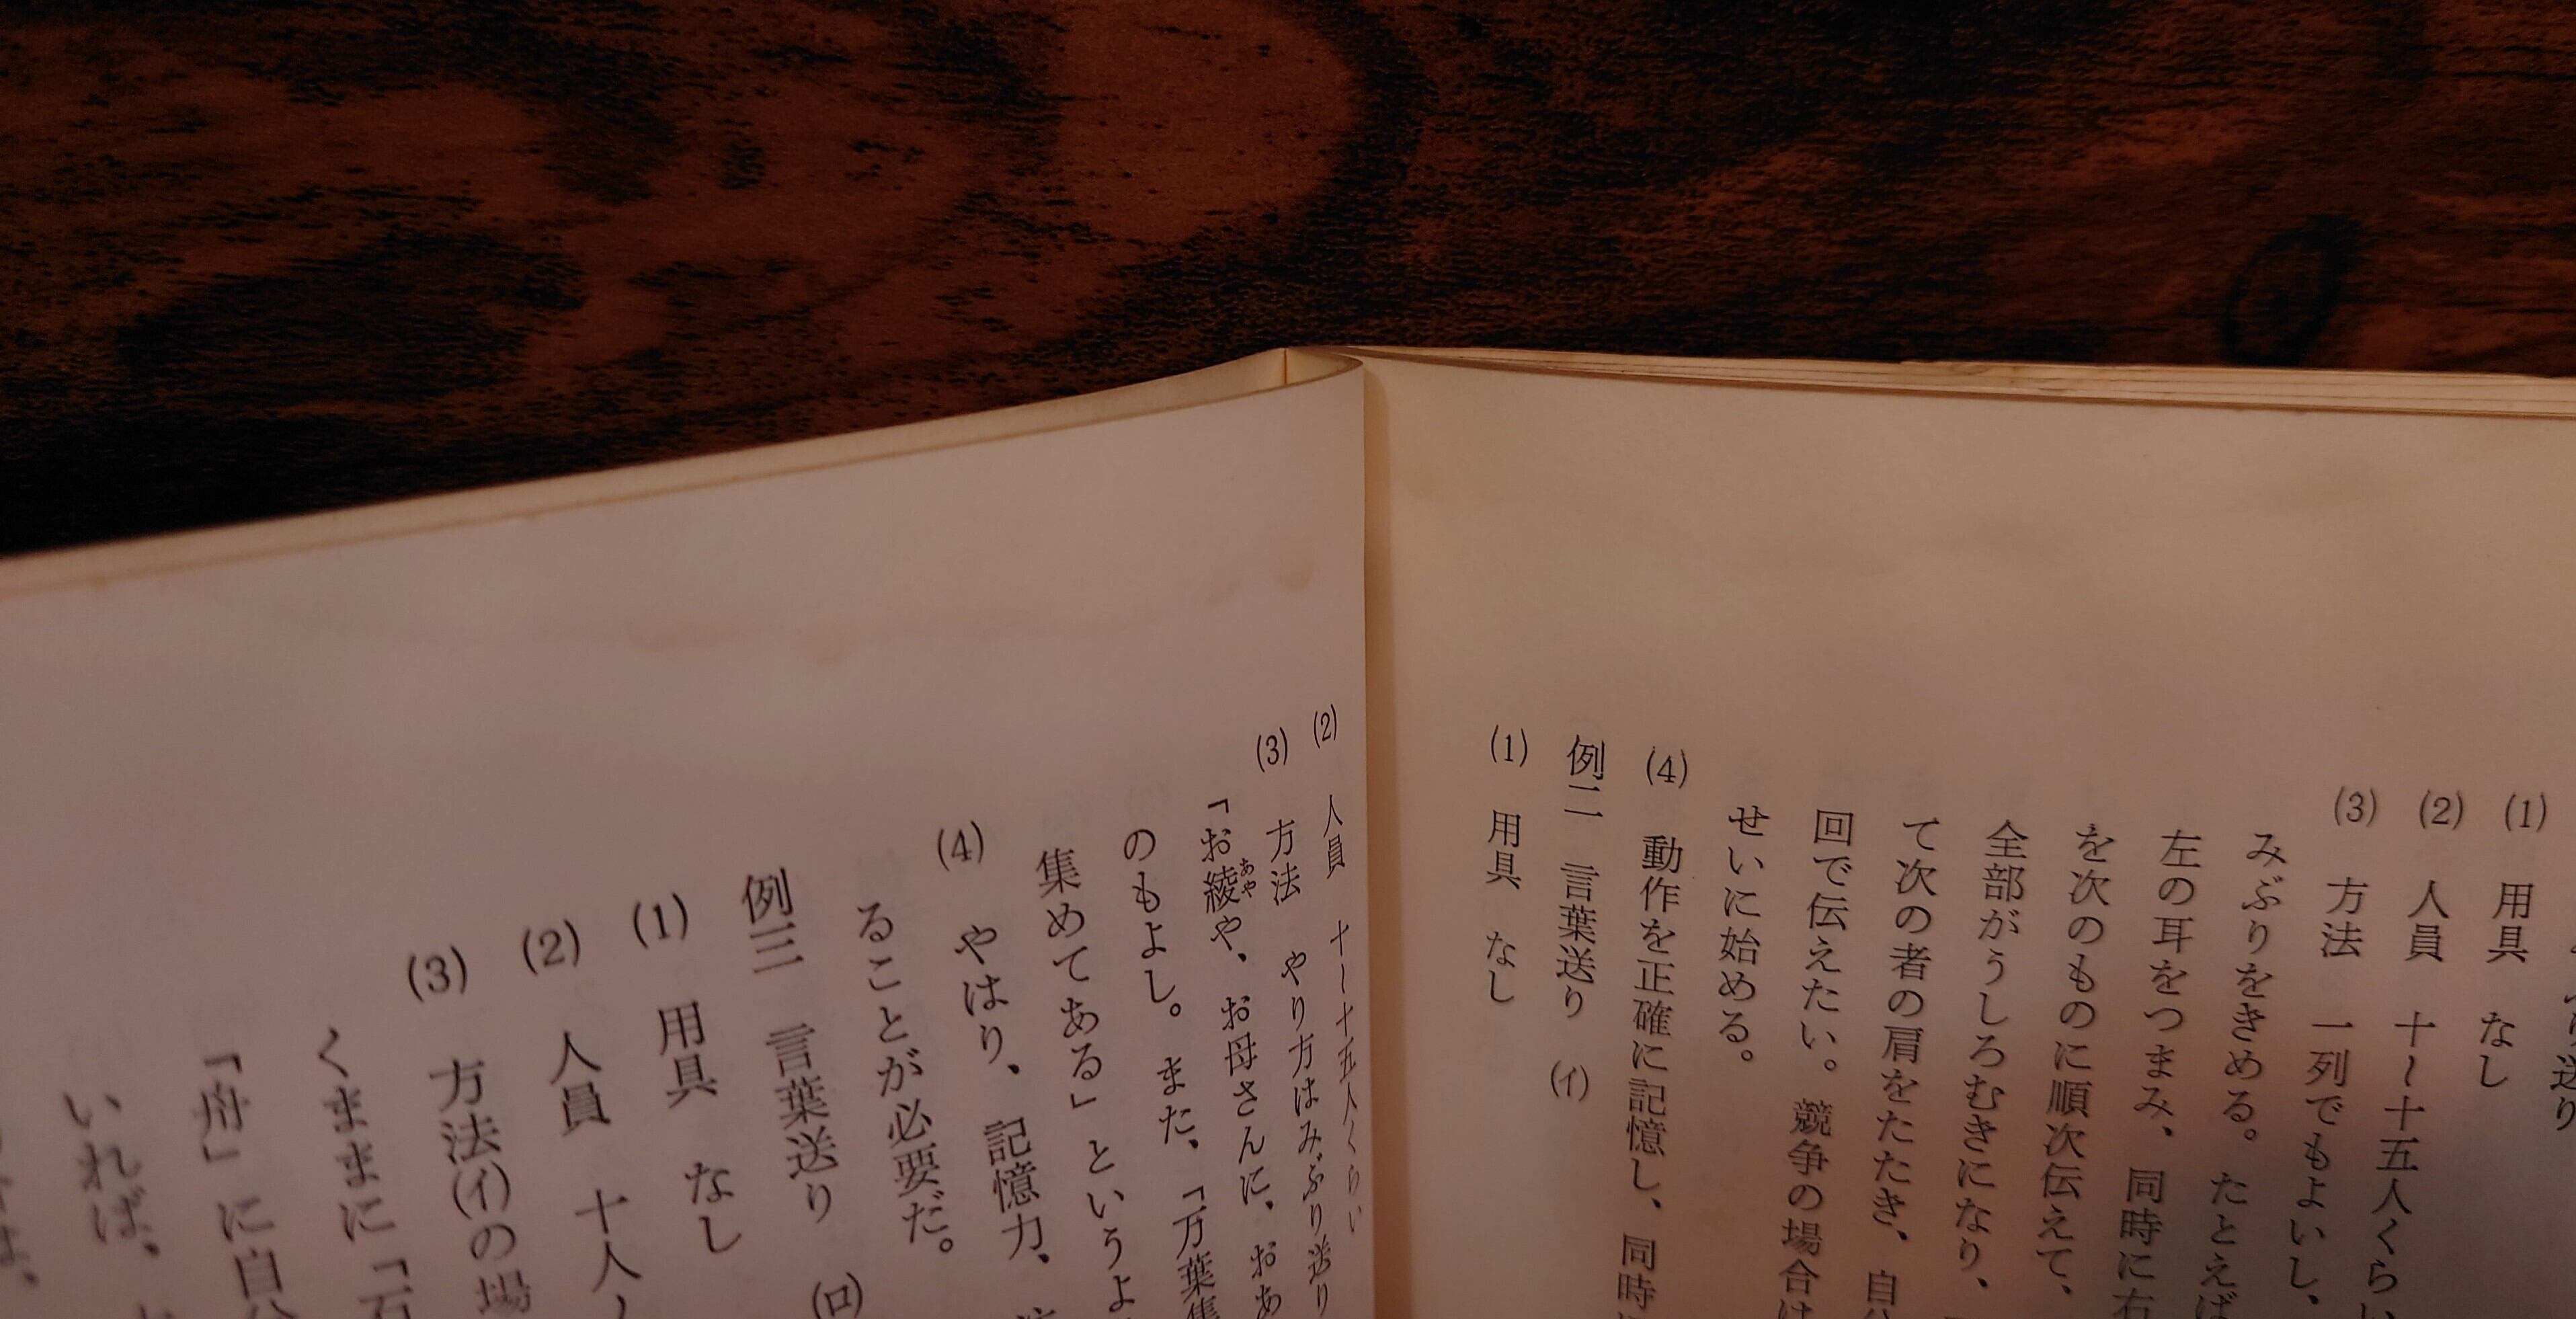 り送り
(1) 用具 なし
(2) 人員 十〜十五人くらい
(3) 方法 一列でもよいし、
みぶりをきめる。たとえば
左の耳をつまみ、同時に右
を次のものに順次伝えて、
全部がうしろむきになり、
て次の者の肩をたたき、自分
回で伝えたい。競争の場合は
せいに始める。
(4) 動作を正確に記憶し、同時
例二 言葉送り (イ)
(1) 用具 なし
(2) 人員 十〜十五人くらい
(3) 方法 やり方はみぶり送り
「お綾や、お母さんに、おあ
あや
のもよし。また、「万葉集
集めてある」というよ
(4) やはり、記憶力、
ることが必要だ。
例三 言葉送り (ロ)
(1) 用具 なし
(2) 人員 十人
(3) 方法(イ)の場
くままに「石
「舟」に自分
いれば、